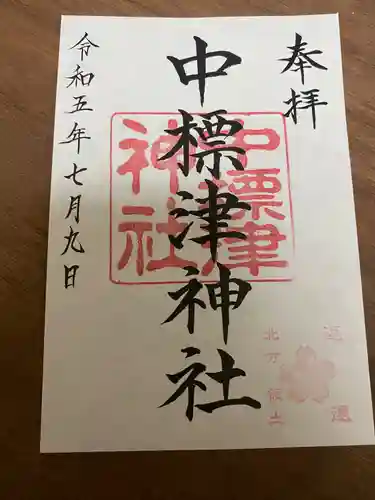 奉拝
中標津神社
令和五年七月九日
中標津
神社
北方領土